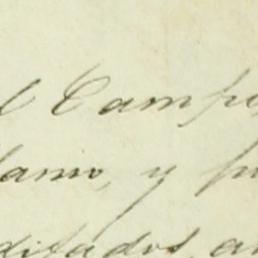 l Campo,
lamo, y p
ditados, a